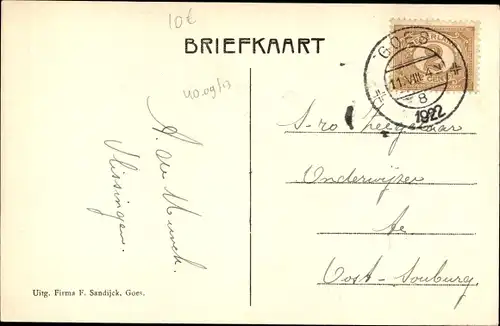 10€
BRIEFKAART
40.09/13
GOES
11.VIII
8
1922
NEDERLAND
CENT
A. de Munck.
Vlissingen.
Onderwijzer
te
Oost-Souburg
Uitg. Firma F. Sandijck, Goes.